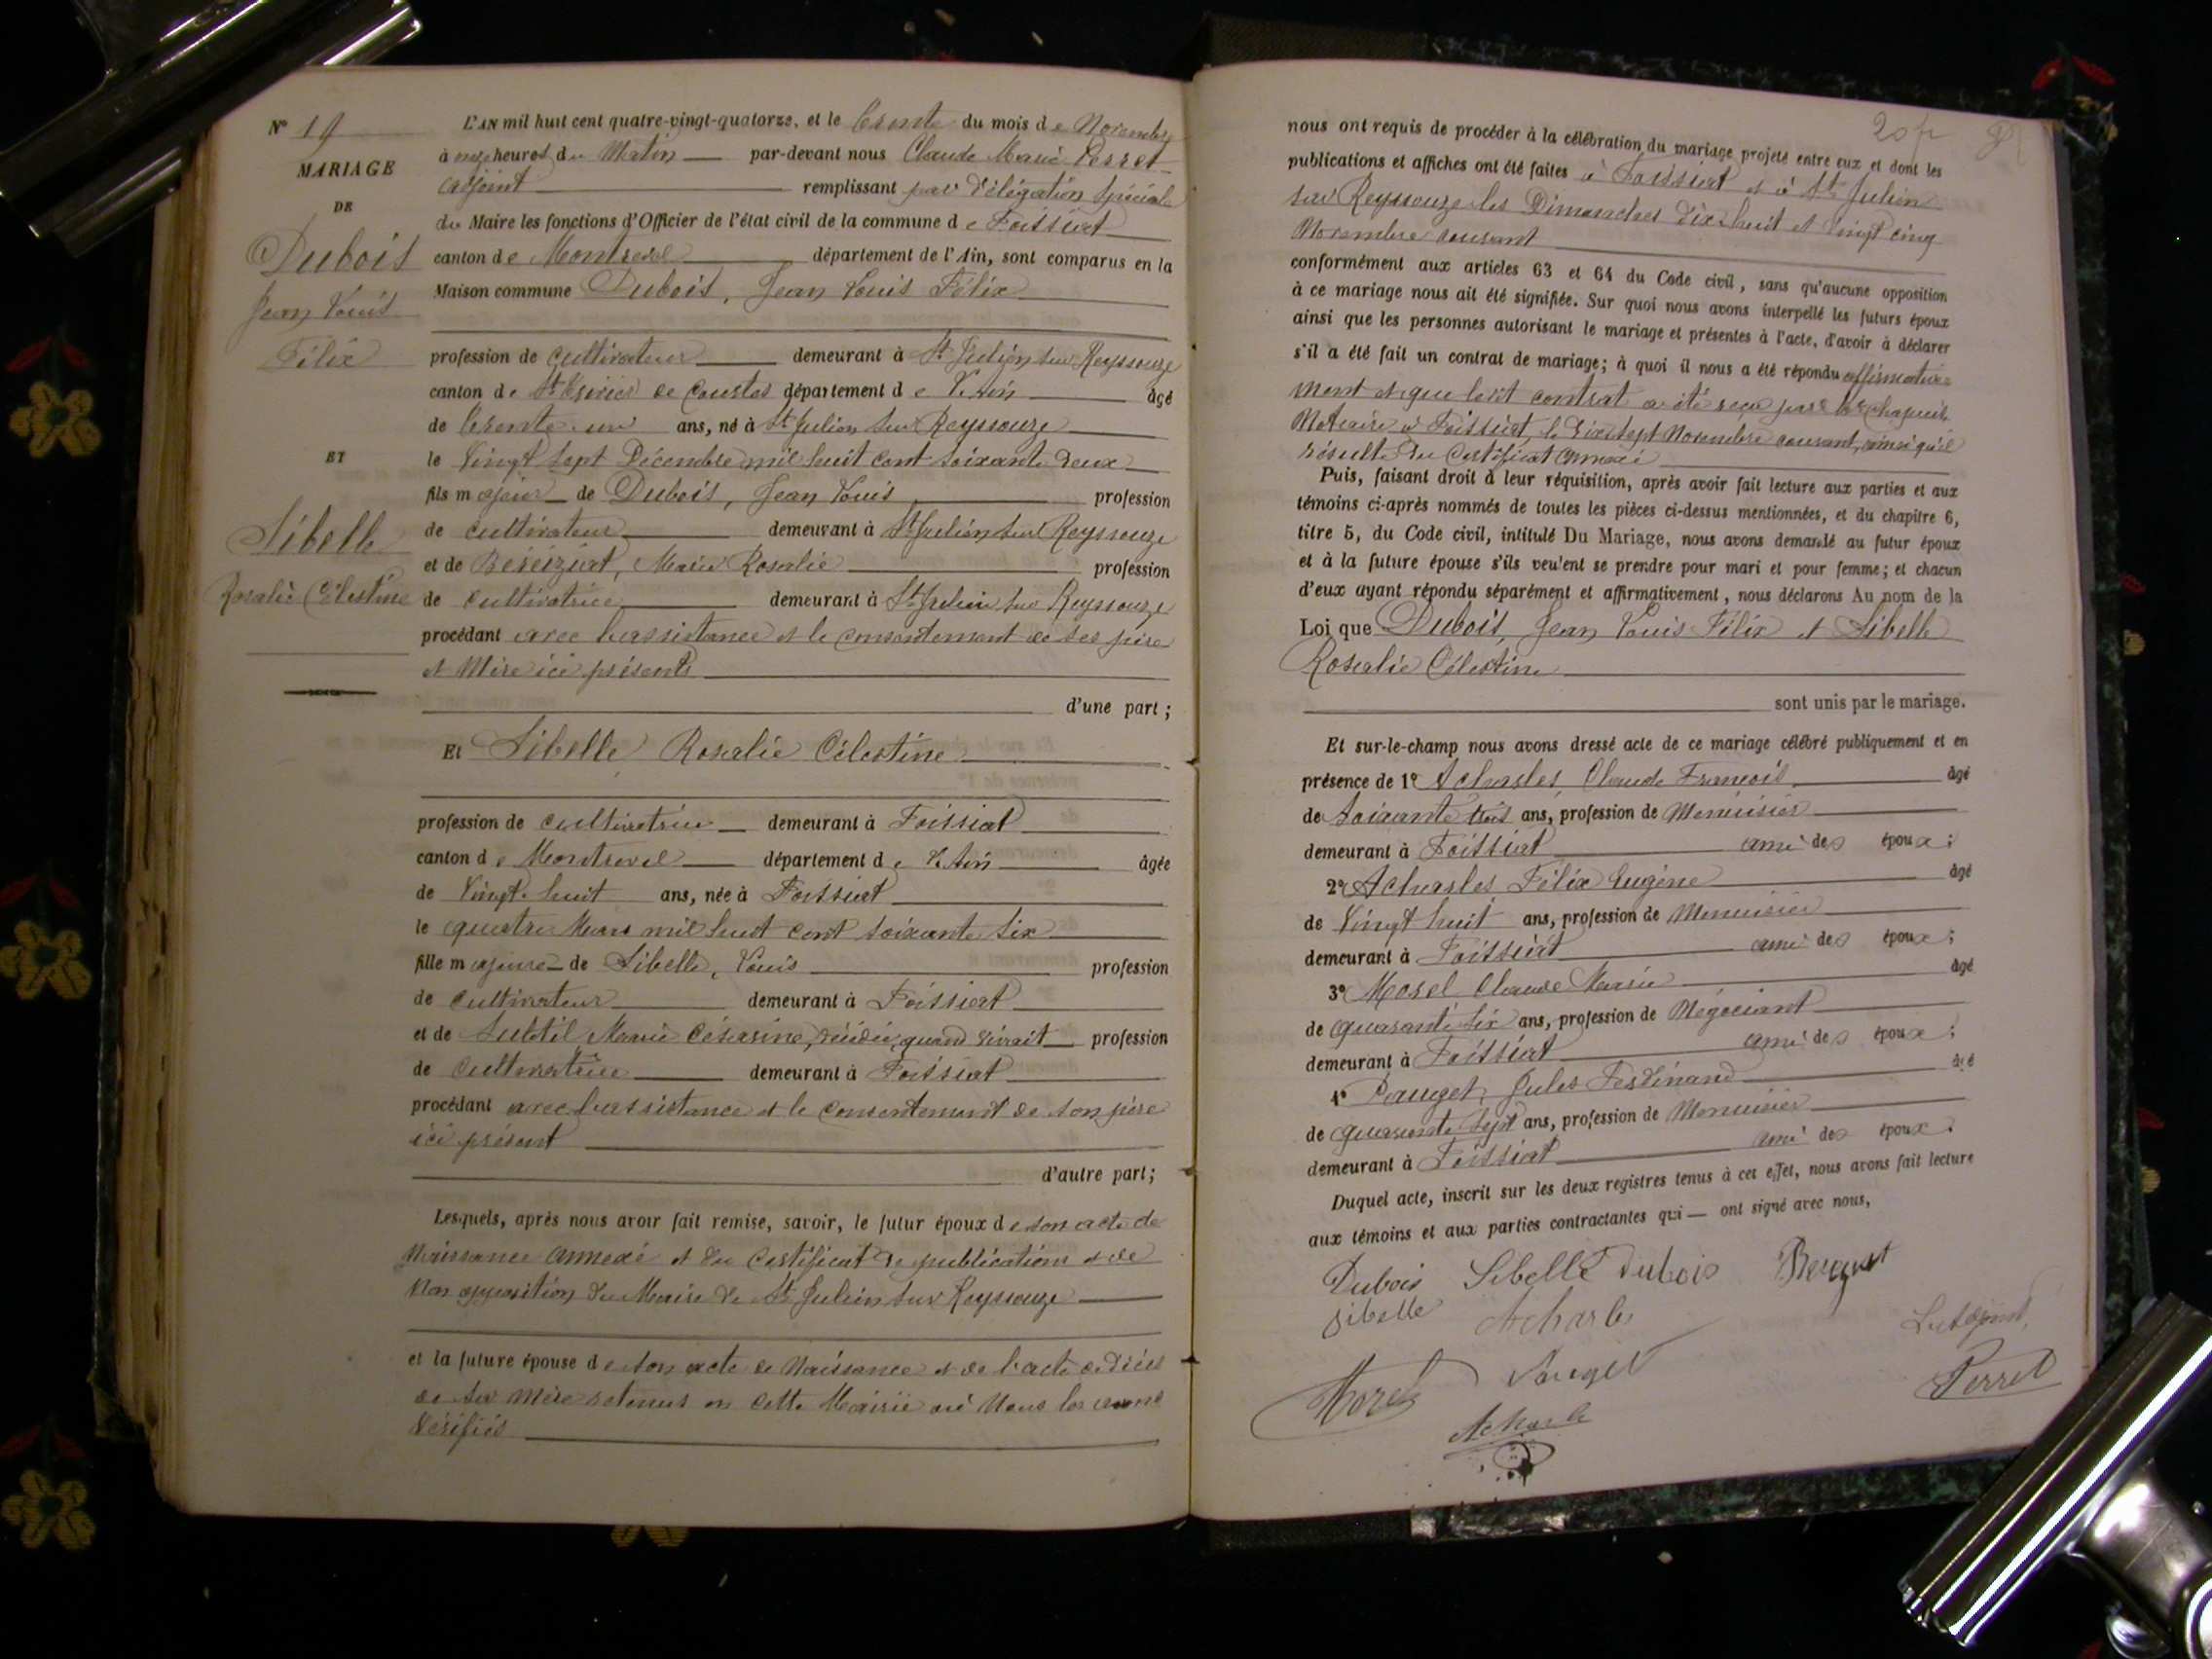 N° 19
MARIAGE
DE
Dubois
Jean Louis
Félix
ET
Sibelle
Rosalie Célestine
L'AN mil huit cent quatre-vingt-quatorze, et le trente du mois de Novembre
à onze heures du Matin par-devant nous Claude Marie Perret
adjoint remplissant par délégation spéciale
du Maire les fonctions d'Officier de l'état civil de la commune de Foissiat
canton de Montrevel département de l'Ain, sont comparus en la
Maison commune Dubois, Jean Louis Félix
profession de cultivateur demeurant à St Julien sur Reyssouze
canton de St Trivier de Courtes département de l'Ain âgé
de trente un ans, né à St Julien sur Reyssouze
le vingt sept Décembre mil huit cent soixante deux
fils majeur de Dubois, Jean Louis profession
de cultivateur demeurant à St Julien sur Reyssouze
et de Béréziat, Marie Rosalie profession
de cultivatrice demeurant à St Julien sur Reyssouze
procédant avec l'assistance et le consentement de ses père
et Mère ici présents
d'une part;
Et Sibelle Rosalie Célestine
profession de cultivatrice demeurant à Foissiat
canton de Montrevel département de l'Ain âgée
de Vingt huit ans, née à Foissiat
le quatre Mars mil huit cent soixante six
fille majeure de Sibelle, Louis profession
de cultivateur demeurant à Foissiat
et de Subtil Marie Césarine, décédée, quand vivait profession
de Cultivatrice demeurant à Foissiat
procédant avec l'assistance et le consentement de son père
ici présent
d'autre part;
Lesquels, après nous avoir fait remise, savoir, le futur époux de son acte de
Naissance annexé et du certificat de publications et de
Non opposition du Maire de St Julien sur Reyssouze
et la future épouse de son acte de Naissance et de l'acte de décès
de sa mère retenus en cette Mairie où Nous les avons
vérifiés
20 fr
nous ont requis de procéder à la célébration du mariage projeté entre eux et dont les
publications et affiches ont été faites à Foissiat et à St Julien
sur Reyssouze les Dimanches dix huit et vingt cinq
Novembre courant
conformément aux articles 63 et 64 du Code civil, sans qu'aucune opposition
à ce mariage nous ait été signifiée. Sur quoi nous avons interpellé les futurs époux
ainsi que les personnes autorisant le mariage et présentes à l'acte, d'avoir à déclarer
s'il a été fait un contrat de mariage; à quoi il nous a été répondu affirmative
ment et que ledit contrat a été reçu par Me Chapuis
Notaire à Foissiat, le dix sept Novembre courant, ainsi qu'il
résulte du certificat annexé
Puis, faisant droit à leur réquisition, après avoir fait lecture aux parties et aux
témoins ci-après nommés de toutes les pièces ci-dessus mentionnées, et du chapitre 6,
titre 5, du Code civil, intitulé Du Mariage, nous avons demandé au futur époux
et à la future épouse s'ils veulent se prendre pour mari et pour femme; et chacun
d'eux ayant répondu séparément et affirmativement, nous déclarons Au nom de la
Loi que Dubois, Jean Louis Félix et Sibelle
Rosalie Célestine
sont unis par le mariage.
Et sur-le-champ nous avons dressé acte de ce mariage célébré publiquement et en
présence de 1° Acharles, Claude François âgé
de Soixante trois ans, profession de Menuisier
demeurant à Foissiat ami des époux;
2° Acharles Félix Eugène âgé
de Vingt huit ans, profession de Menuisier
demeurant à Foissiat ami des époux;
3° Morel Claude Marie âgé
de quarante six ans, profession de Négociant
demeurant à Foissiat ami des époux;
4° Pauget, Jules Ferdinand âgé
de quarante sept ans, profession de Menuisier
demeurant à Foissiat ami des époux.
Duquel acte, inscrit sur les deux registres tenus à cet effet, nous avons fait lecture
aux témoins et aux parties contractantes qui ont signé avec nous,
Dubois Sibelle Dubois
Sibelle Acharles L'adjoint,
Morel Pauget Perret
Acharle